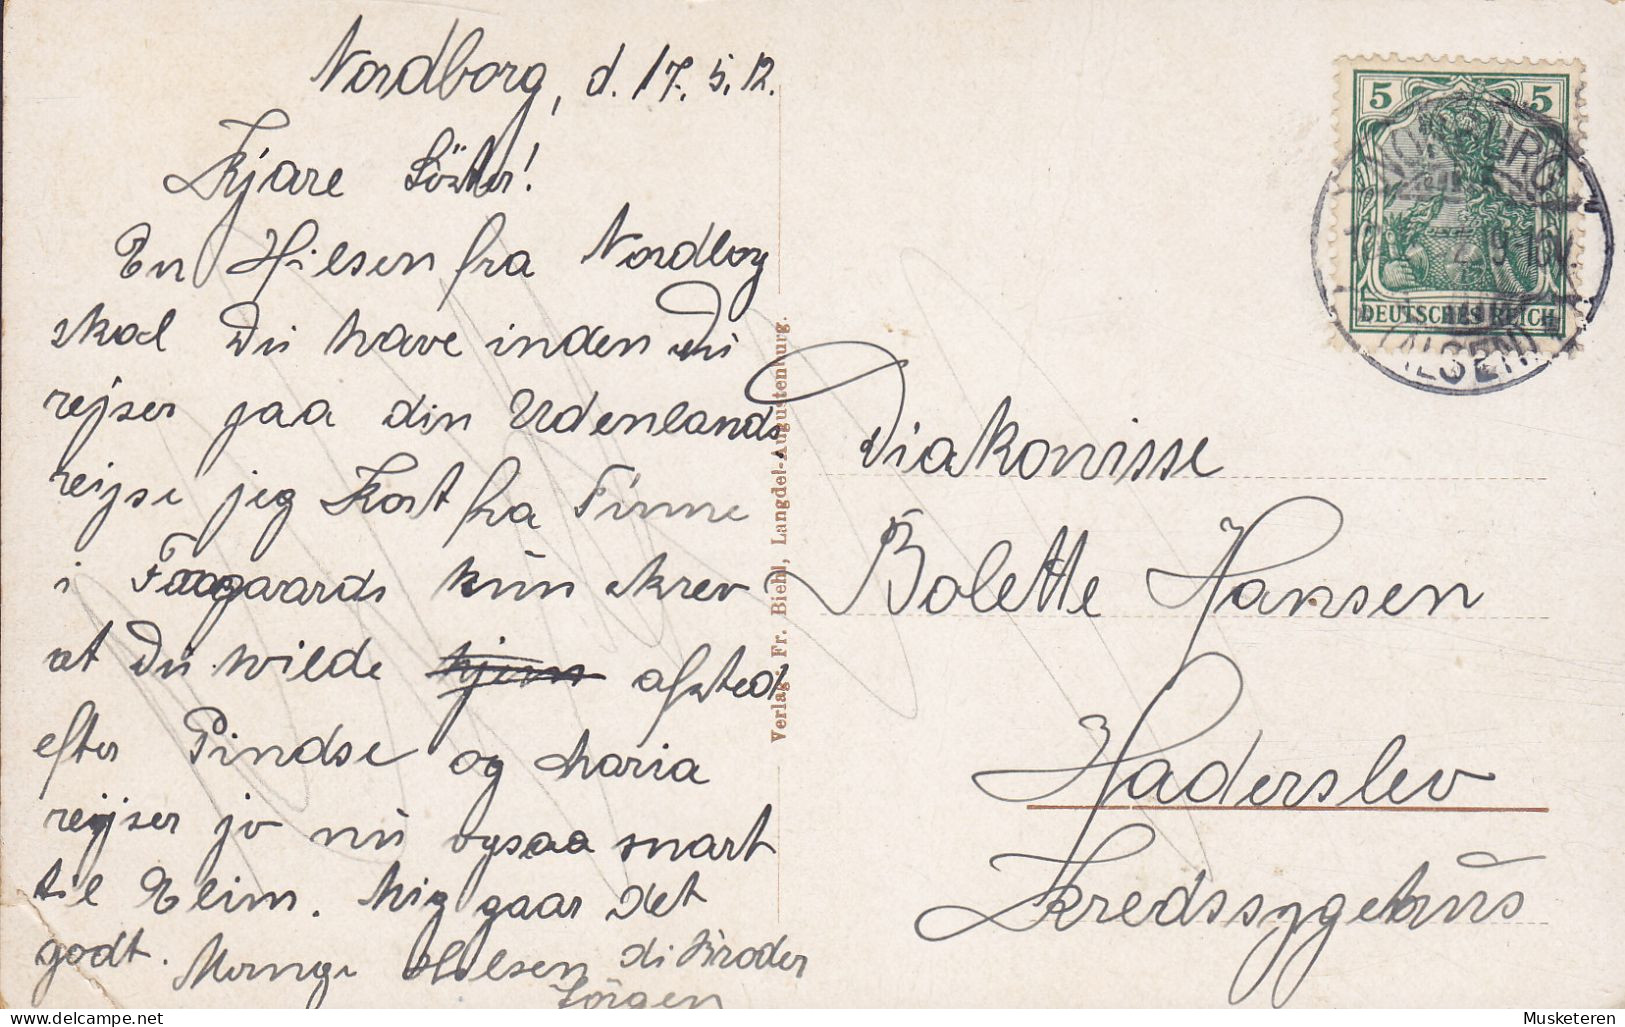 Nordborg, d. 17. 5. 12.
Kjære Söster!
En Hilsen fra Nordborg
skal Du have inden Du
rejser paa din Udenlands
rejse jeg Kort fra Tinne
i Faagaards hun skrev
at Du vilde hjem afsted
efter Pindse og Maria
rejser jo nu ogsaa snart
til Elim. Mig gaar det
godt. Mange Hilsen di Broder
Jörgen
Verlag Fr. Biehl, Langdel-Augustenburg.
5 5
DEUTSCHES REICH
NORDBURG
12 9-10V.
(ALSEN)
Diakonisse
Bolette Hansen
Haderslev
Kredssygehus
Musketeren